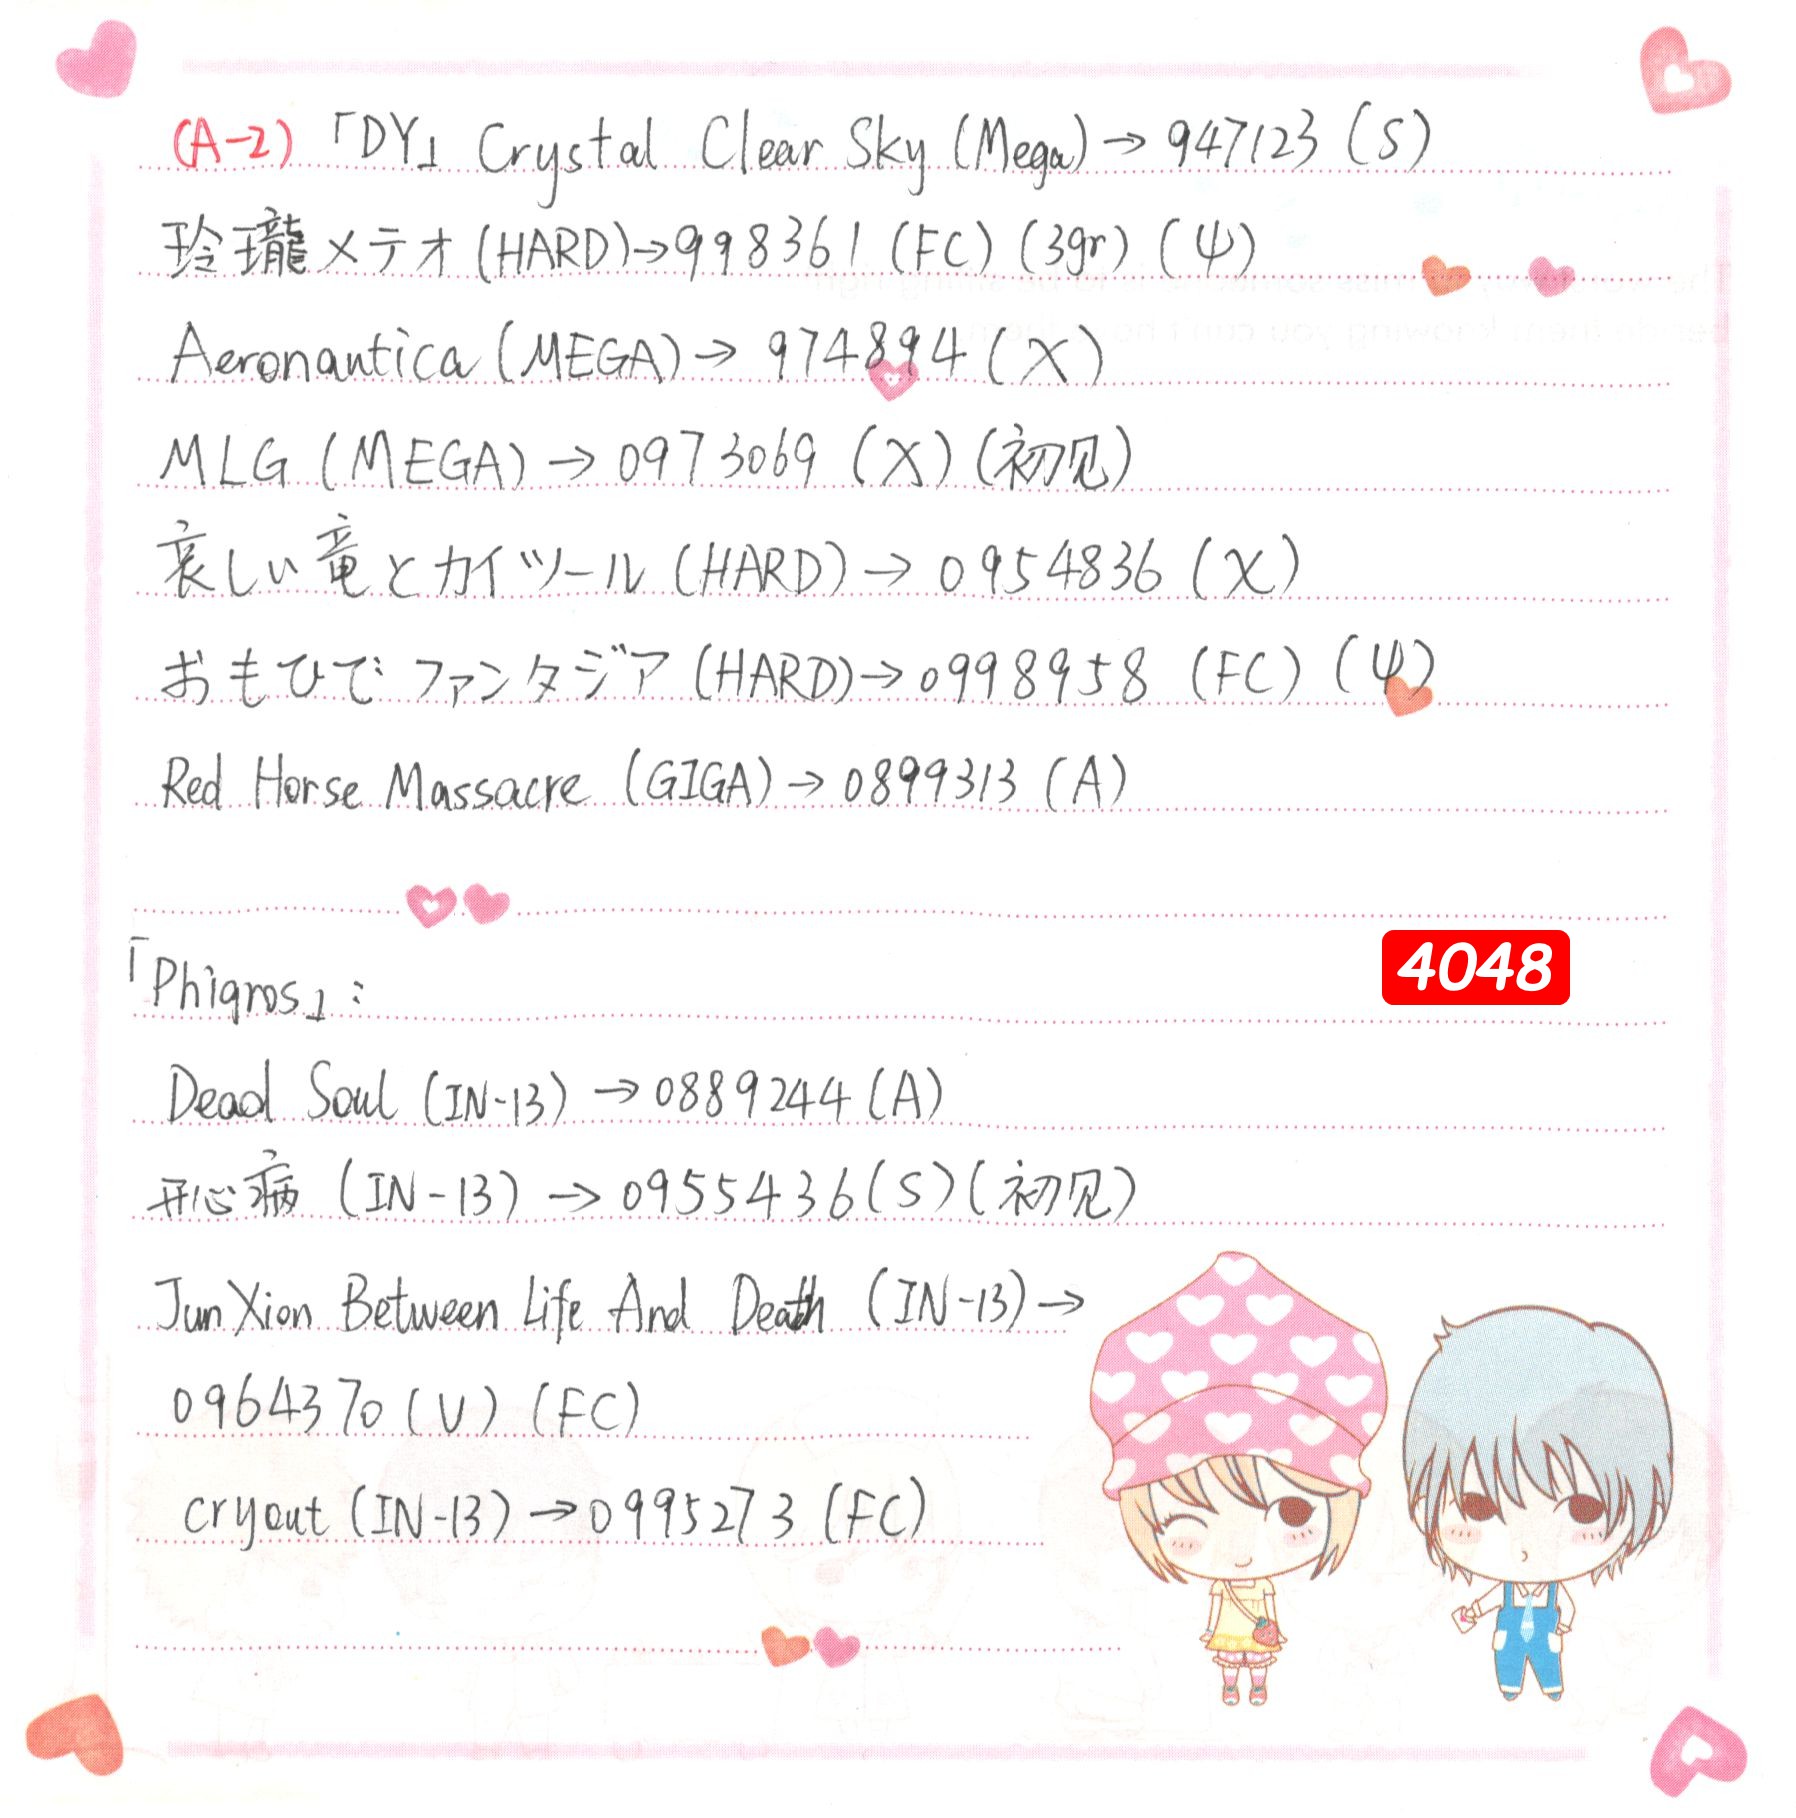 (A-2)「DY」Crystal Clear Sky (Mega)→947123 (S)
玲瓏メテオ(HARD)→998361 (FC) (3gr) (ψ)
Aeronautica (MEGA)→ 974894 (X)
MLG (MEGA) → 0973069 (X) (初见)
哀しい竜とカイツール (HARD) → 0954836 (X)
おもひでファンタジア (HARD)→0998958 (FC) (ψ)
Red Horse Massacre (GIGA)→0899313 (A)
「Phigros」:
4048
Dead Soul (IN-13) →0889244 (A)
开心病 (IN-13) → 0955436 (S) (初见)
JunXion Between Life And Death (IN-13)→
0964370 (V) (FC)
cryout (IN-13) →0995273 (FC)